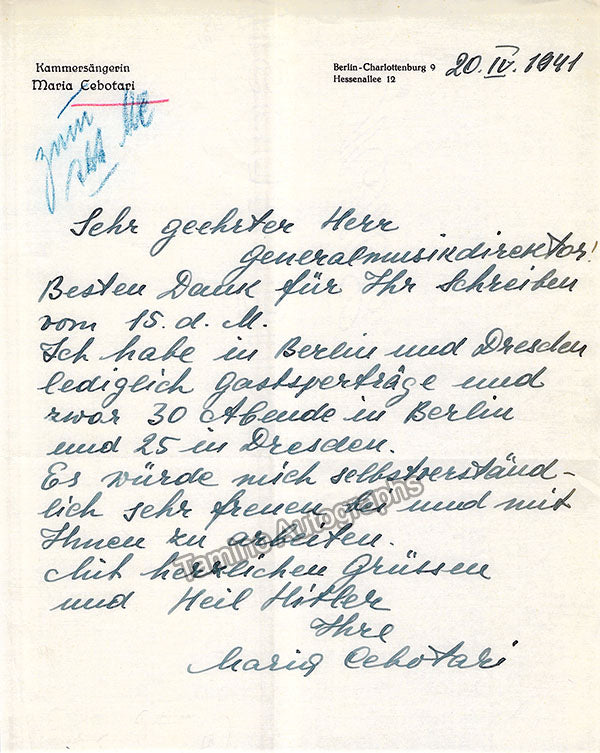 Kammersängerin
Maria Cebotari
Berlin-Charlottenburg 9
Hessenallee 12
20. IV. 1941
zum
Sehr geehrter Herr
Generalmusikdirektor!
Besten Dank für Ihr Schreiben
vom 15. d. M.
Ich habe in Berlin und Dresden
lediglich Gastsperträge und
zwar 30 Abende in Berlin
und 25 in Dresden.
Es würde mich selbstverständ-
lich sehr freuen bei und mit
Ihnen zu arbeiten.
Mit herzlichen Grüssen
und Heil Hitler
Ihre
Maria Cebotari
Tamino Autographs